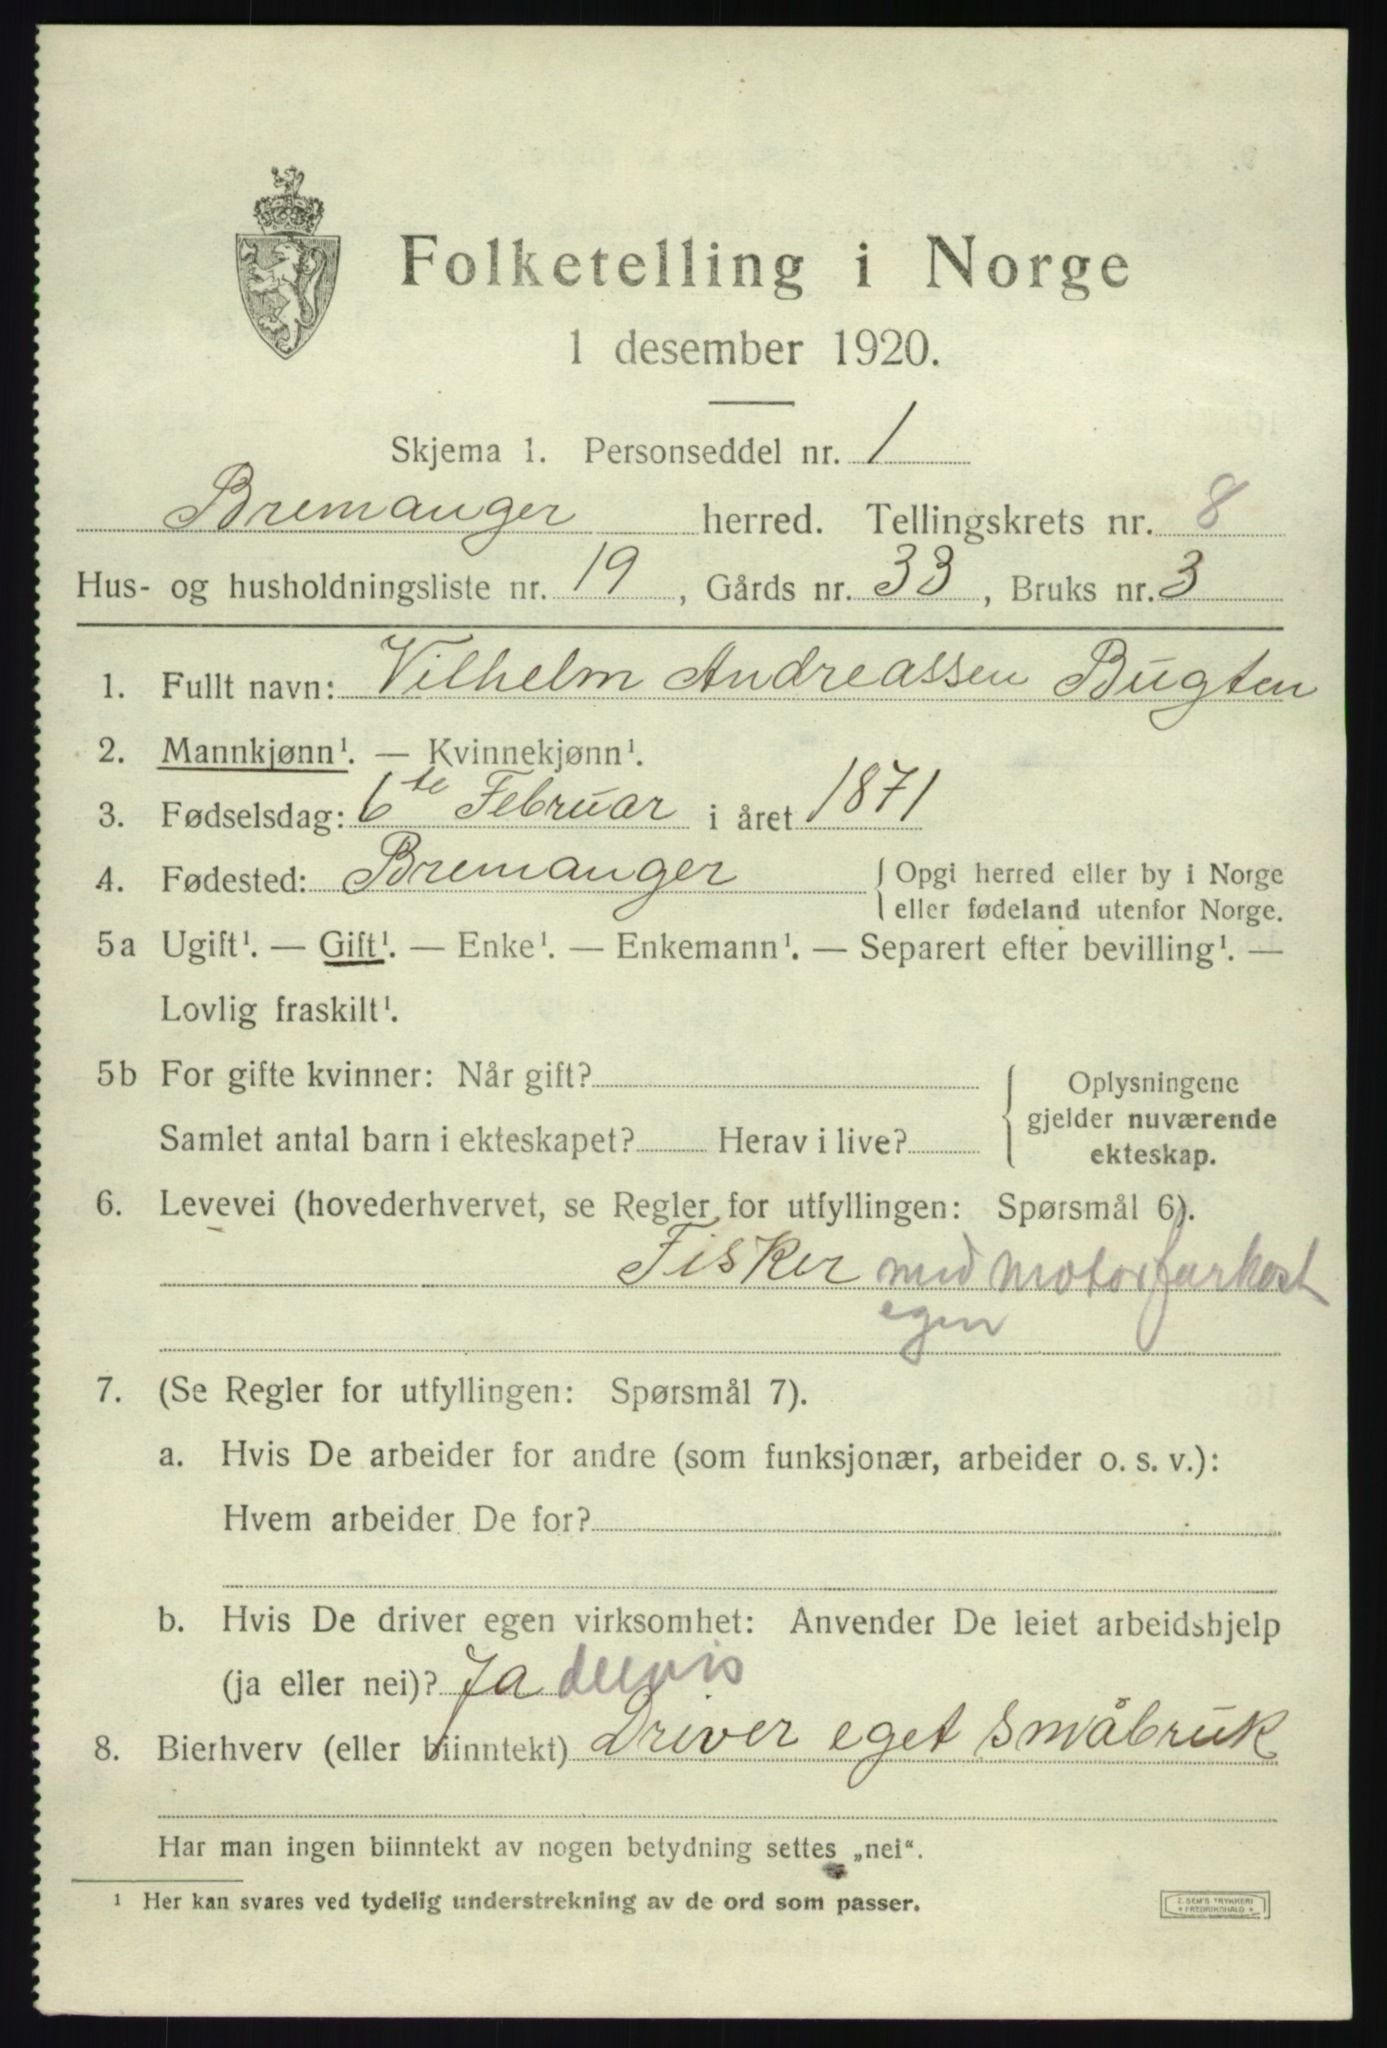 Folketelling i Norge
1 desember 1920.
Skjema 1. Personseddel nr. 1
Bremanger herred. Tellingskrets nr. 8
Hus- og husholdningsliste nr. 19, Gårds nr. 33, Bruks nr. 3
1. Fullt navn: Vilhelm Andreassen Bugten
2. Mannkjønn¹. — Kvinnekjønn¹.
3. Fødselsdag: 6te Februar i året 1871
4. Fødested: Bremanger { Opgi herred eller by i Norge
eller fødeland utenfor Norge.
5a Ugift¹. — Gift¹. — Enke¹. — Enkemann¹. — Separert efter bevilling¹. —
Lovlig fraskilt¹.
5b For gifte kvinner: Når gift?
Samlet antal barn i ekteskapet? Herav i live?
{ Oplysningene
gjelder nuværende
ekteskap.
6. Levevei (hovederhvervet, se Regler for utfyllingen: Spørsmål 6).
Fisker med motorfarkost
egen
7. (Se Regler for utfyllingen: Spørsmål 7).
a. Hvis De arbeider for andre (som funksjonær, arbeider o. s. v.):
Hvem arbeider De for?
b. Hvis De driver egen virksomhet: Anvender De leiet arbeidshjelp
(ja eller nei)? Ja delvis
8. Bierhverv (eller biinntekt) Driver eget småbruk
Har man ingen biinntekt av nogen betydning settes „nei".
¹ Her kan svares ved tydelig understrekning av de ord som passer.
E. SEM'S TRYKKERI
* FREDRIKSHALD *